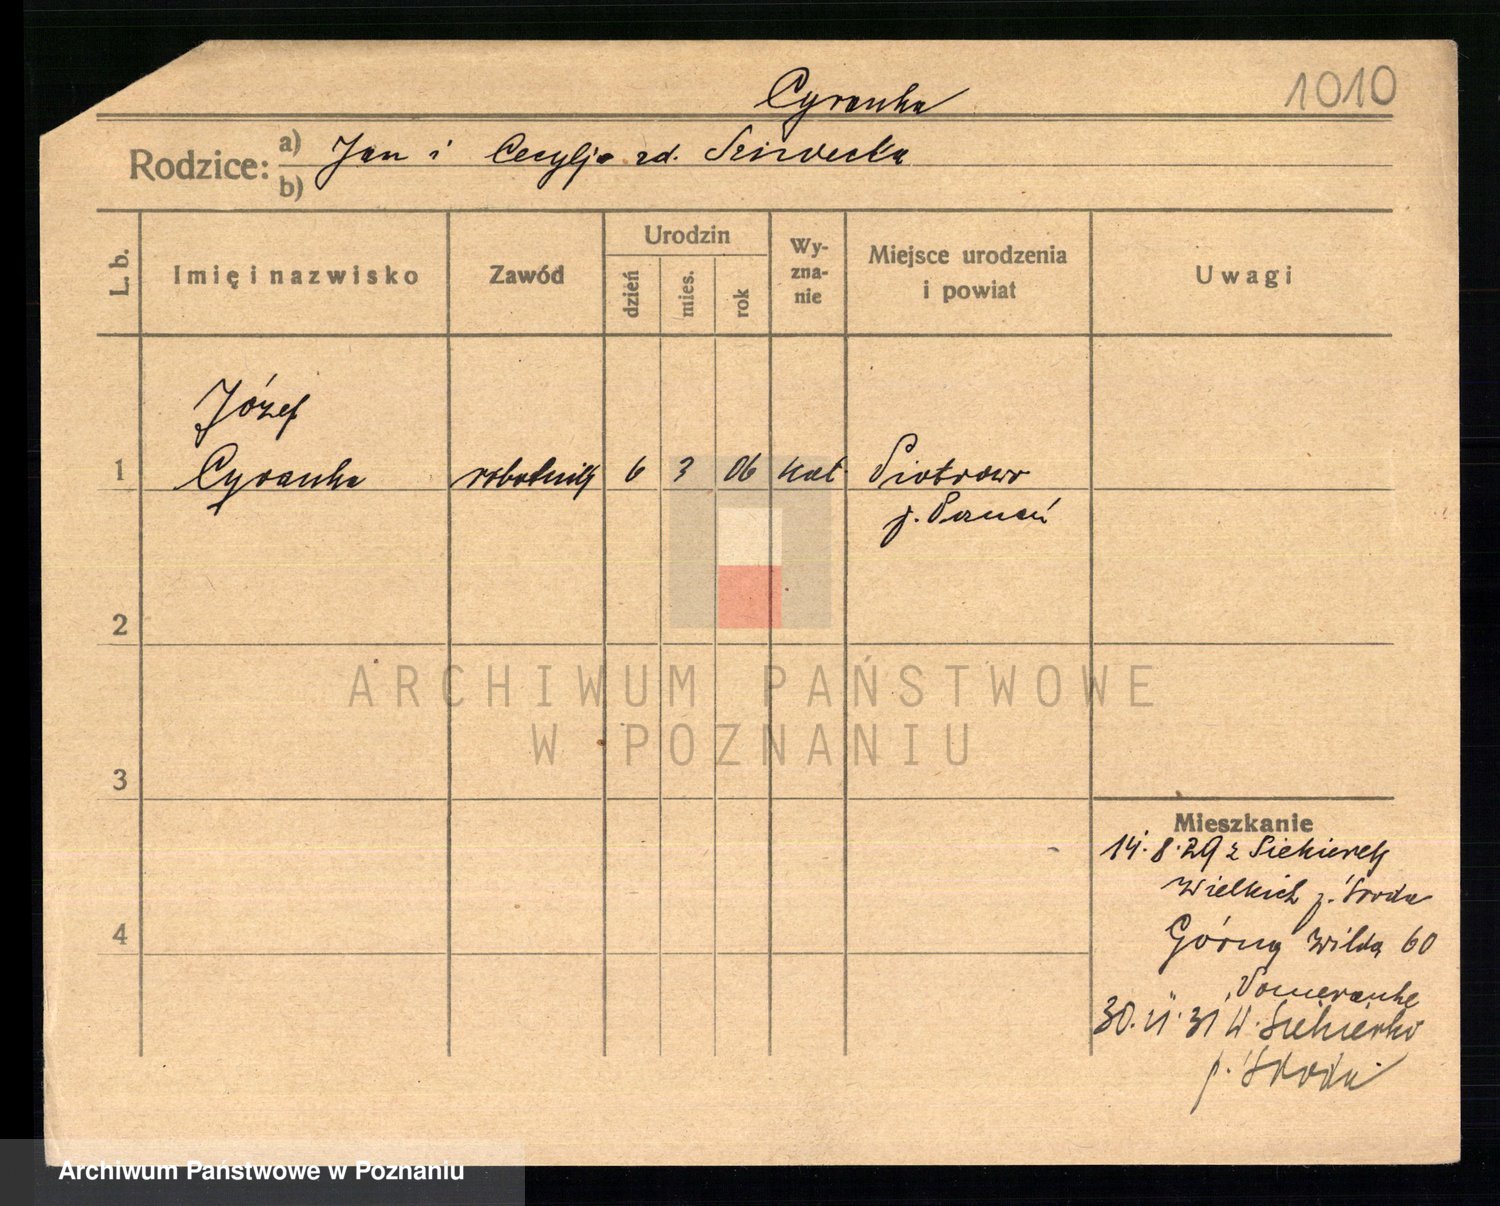 Cyranka
1010
Rodzice: a) Jan i Cecylja zd. Sziwecka
b)
L. b.
Imię i nazwisko
Zawód
Urodzin
dzień
mies.
rok
Wy-
zna-
nie
Miejsce urodzenia
i powiat
Uwagi
Józef
1 Cyranka robotnik 6 3 06 kat Piotrowo
p. Poznań
2
ARCHIWUM PAŃSTWOWE
W POZNANIU
3
Mieszkanie
14.8.29 z Siekierek
Wielkich p. Środa
4
Górną Wildą 60
30.11.31 W. Siekierki
p. Środa
Archiwum Państwowe w Poznaniu